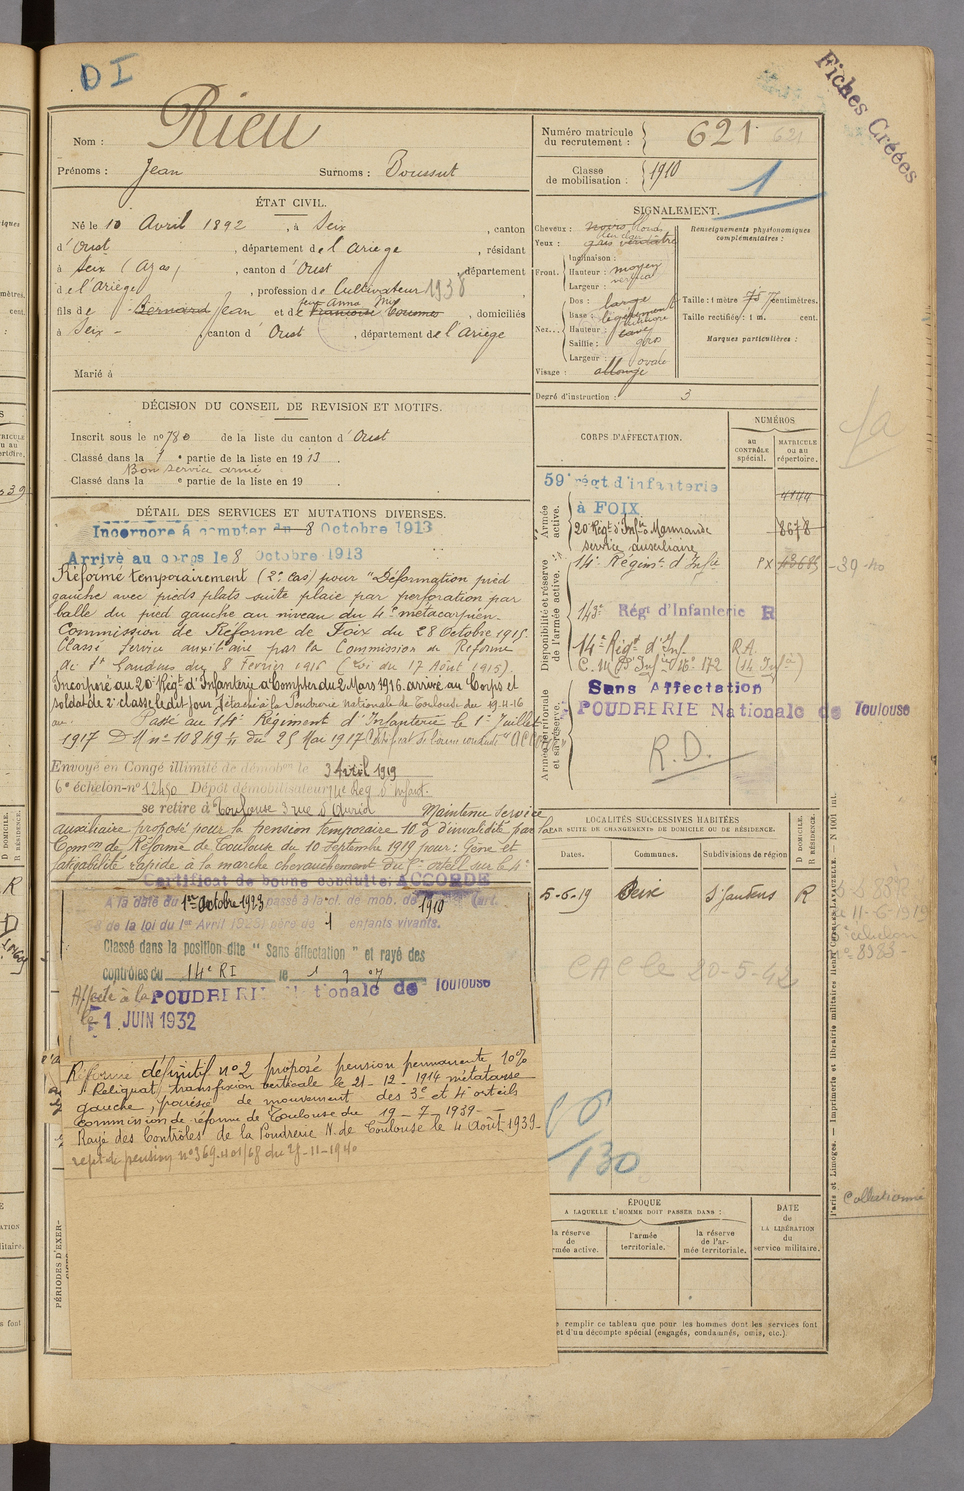 DI
Fiches Créées
Nom : Rieu
Prénoms : Jean Surnoms : Boussut
Numéro matricule du recrutement : 621 621
Classe de mobilisation : 1910
1
ÉTAT CIVIL.
Né le 10 Avril 1892, à Seix, canton
d'Oust, département de l'Ariège, résidant
à Seix (Azas), canton d'Oust, département
de l'Ariège, profession de Cultivateur 1938
feue Anna
fils de Bernard Jean et de Francoise, domiciliés
à Seix - canton d'Oust, département de l'Ariège
Marié à
SIGNALEMENT.
Cheveux : noirs blonds
Yeux : gris verdâtre
Front. Inclinaison :
Hauteur : moyen
Largeur : vertical
Nez... Dos : large
Base : légèrement
Hauteur : cave
Saillie : gros
Largeur :
ovale
Visage : allongé
Renseignements physionomiques complémentaires :
Taille : 1 mètre 75 centimètres.
Taille rectifiée : 1 m. cent.
Marques particulières :
Degré d'instruction : 3
DÉCISION DU CONSEIL DE REVISION ET MOTIFS.
Inscrit sous le no 78 de la liste du canton d'Oust
Classé dans la 1e partie de la liste en 1913.
Bon service armé
Classé dans la e partie de la liste en 19 .
DÉTAIL DES SERVICES ET MUTATIONS DIVERSES.
Incorporé à compter du 8 Octobre 1913
Arrivé au corps le 8 Octobre 1913
Réformé temporairement (2e Cas) pour "Déformation pied
gauche avec pieds plats suite plaie par perforation par
balle du pied gauche au niveau du 4e métacarpien.
Commission de Réforme de Foix du 28 Octobre 1915.
Classé Service auxiliaire par la Commission de Réforme
de St Gaudens du 8 Février 1916 (Loi du 17 Août 1915).
Incorporé au 20e Régt d'Infanterie à Compter du 2 Mars 1916. arrivé au Corps et
soldat de 2e classe le dit jour. Détaché à la Poudrerie Nationale de Toulouse du 19-4-16
au. Passé au 14e Régiment d'Infanterie le 1er Juillet
1917 DM no 10849 1/4 du 25 Mai 1917
Envoyé en Congé illimité de démob le 3 Avril 1919
6e échelon - no 12450 Dépôt démobilisateur 14e Rég d'Infant.
se retire à Toulouse 3 rue d'Auriol Maintenu Service
auxiliaire proposé pour la pension temporaire 10% d'invalidité par la
Comon de Réforme de Toulouse du 10 Septembre 1919 pour : Gêne et
fatigabilité rapide à la marche chevauchement du 5e orteil sur le 4e
Certificat de bonne conduite ACCORDÉ
A la date du 1er Octobre 1923 passé à la cl. de mob. de 1910 (art.
de la loi du 1er Avril 1923) père de 1 enfants vivants.
Classé dans la position dite "Sans affectation" et rayé des
contrôles du 14e RI le 1
Affecté à la POUDRERIE Nationale de Toulouse
le 1 JUIN 1932
Réforme définitif no 2 proposé pension permanente 10%
Reliquat transfixion verticale le 21-12-1914 métatarse
gauche, parésie de mouvement des 3e et 4e orteils
commission de réforme de Toulouse du 19-7-1939-
Rayé des Contrôles de la Poudrerie N. de Toulouse le 4 Août 1939-
de pension no 369.401/68 du 28-11-1940
PÉRIODES D'EXER-
CORPS D'AFFECTATION.
NUMÉROS
au CONTRÔLE spécial.
MATRICULE ou au répertoire.
Armée active.
59e régt d'infanterie 4144
à FOIX
20e Régt d'Infie Marmande 8678
service auxiliaire
Disponibilité et réserve de l'armée active.
14e Régimt d'Infie PX 43685 -39-40
143e Régt d'Infanterie R
14e Régt d'Inf. R.A.
C. M (P. Inf.) 172 (14 Infie)
Armée territoriale et sa réserve.
Sans Affectation
POUDRERIE Nationale de Toulouse
R.D.
LOCALITÉS SUCCESSIVES HABITÉES
PAR SUITE DE CHANGEMENTS DE DOMICILE OU DE RÉSIDENCE.
Dates. Communes. Subdivisions de région
D DOMICILE. R RÉSIDENCE.
5-6-19 Seix St Gaudens R
le 11-6-1919
échelon
no 8383-
CAC le 20-5-42
16
130
Collationné
ÉPOQUE
A LAQUELLE L'HOMME DOIT PASSER DANS :
la réserve de armée active.
l'armée territoriale.
la réserve de l'armée territoriale.
DATE de LA LIBÉRATION du service militaire.
remplir ce tableau que pour les hommes dont les services font
et d'un décompte spécial (engagés, condamnés, omis, etc.)
Paris et Limoges. — Imprimerie et librairie militaires Henri CHARLES-LAVAUZELLE. — N 1001 int.